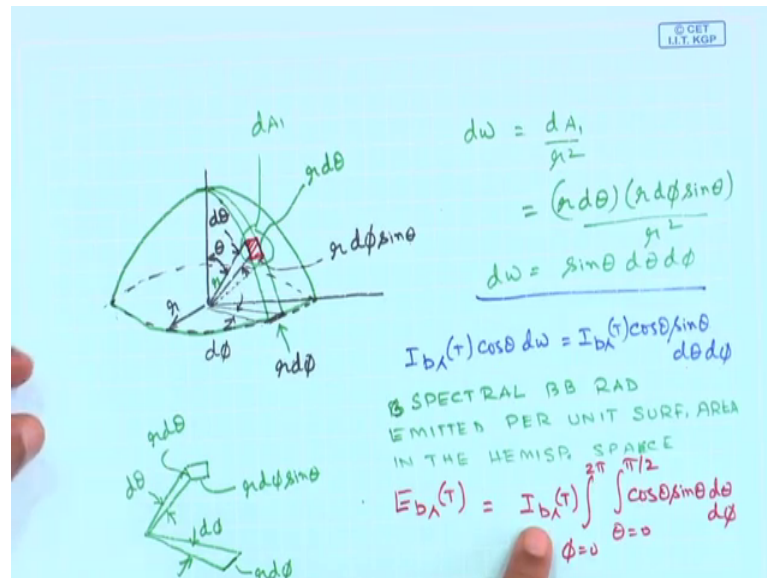 © CET
I.I.T. KGP
dA₁
rdθ
dθ
θ
r
rdφsinθ
r
dφ
rdφ
dω = dA₁ / r²
= (rdθ)(rdφsinθ) / r²
dω = sinθ dθdφ
I_bλ(T) cosθ dω = I_bλ(T) cosθ sinθ
dθdφ
SPECTRAL BB RAD
EMITTED PER UNIT SURF. AREA
IN THE HEMISP. SPACE
E_bλ(T) = I_bλ(T) ∫_{φ=0}^{2π} ∫_{θ=0}^{π/2} cosθ sinθ dθ
dφ
rdθ
dθ
rdφsinθ
dφ
rdφ